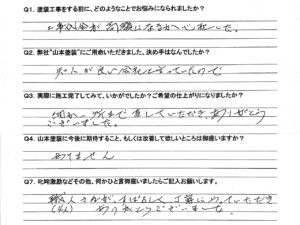 Q1. 塗装工事をする前に、どのようなことでお悩みになられましたか?
工事代金が高額になるか心配した。
Q2. 弊社"山本塗装"にご用命いただきました、決め手はなんでしたか?
が良い会社と言っていたので
Q3. 実際に施工完了してみて、いかがでしたか?ご希望の仕上がりになりましたか?
細かい所まで直していただき、ありがとう
ございました。
Q4. 山本塗装に今後に期待すること、もしくは改善して欲しいところは御座いますか?
ありません
Q7. 叱咤激励などその他、何かひと言御座いましたらご記入お願いします。
職人さんがすばらしく、丁寧にやっていただき
ありがとうございました。